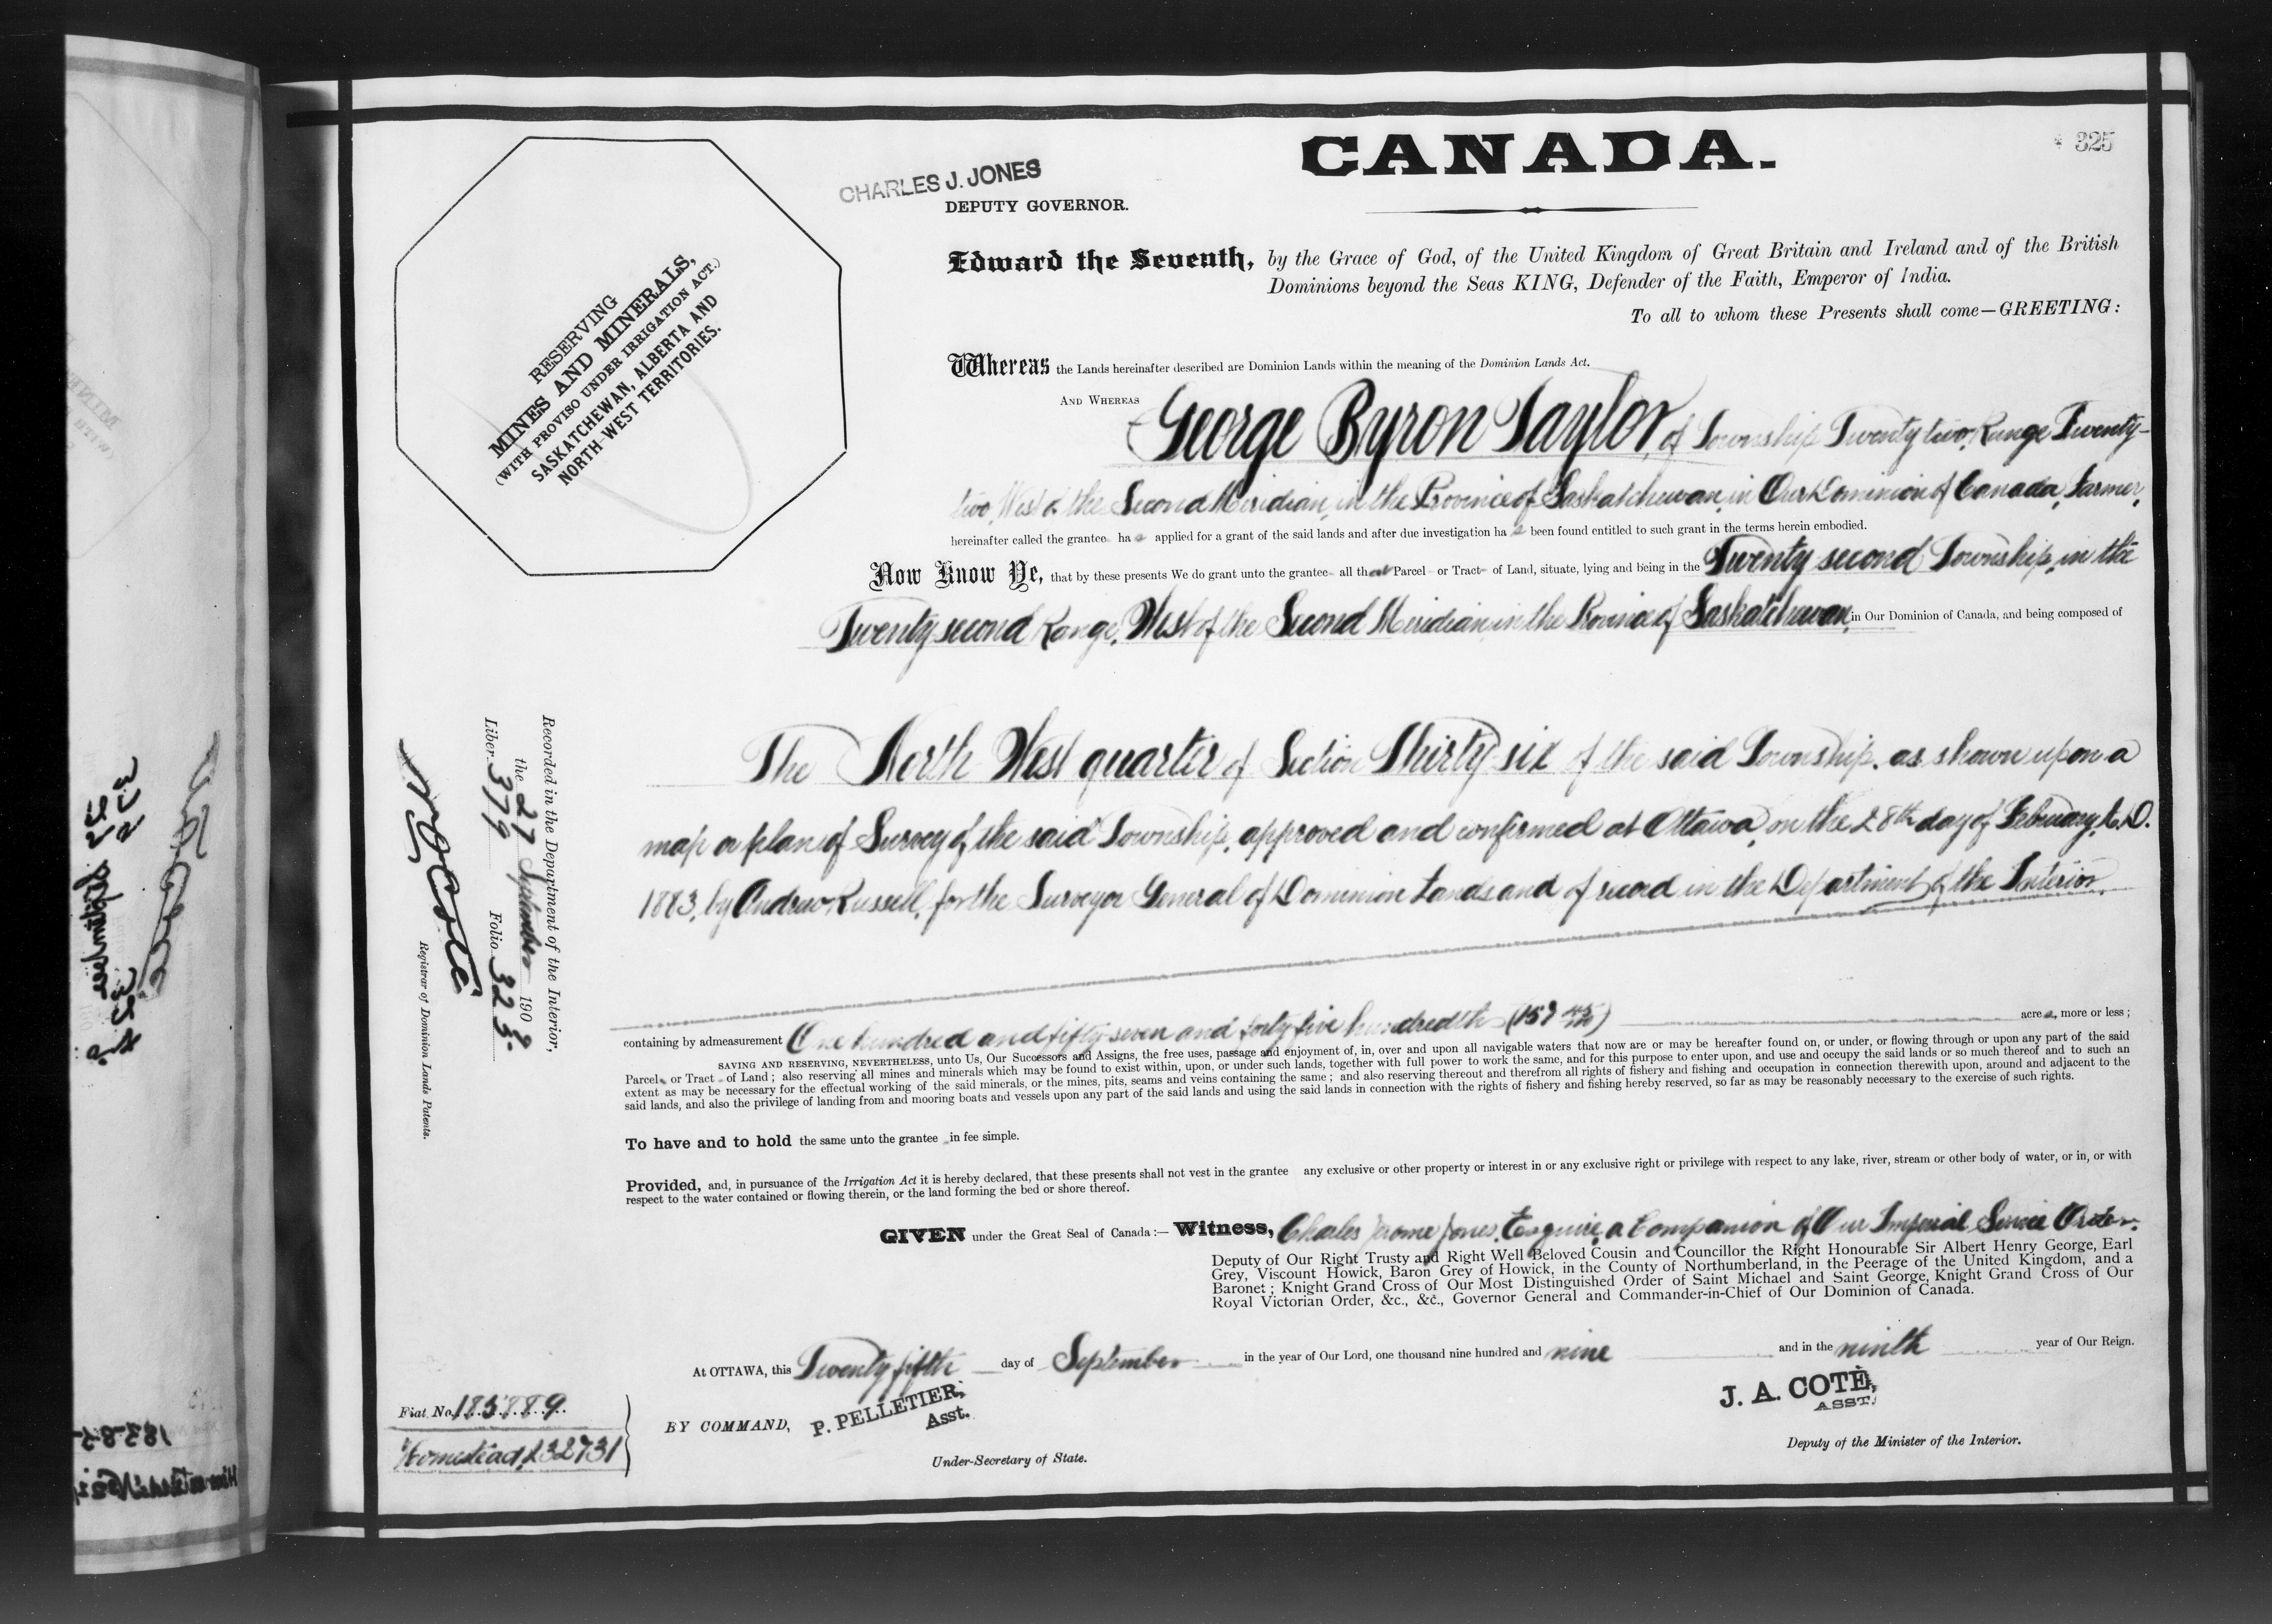 CANADA.
325
CHARLES J. JONES
DEPUTY GOVERNOR.
RESERVING
MINES AND MINERALS,
(WITH PROVISO UNDER IRRIGATION ACT.)
SASKATCHEWAN, ALBERTA AND
NORTH-WEST TERRITORIES.
Edward the Seventh, by the Grace of God, of the United Kingdom of Great Britain and Ireland and of the British
Dominions beyond the Seas KING, Defender of the Faith, Emperor of India.
To all to whom these Presents shall come—GREETING:
Whereas the Lands hereinafter described are Dominion Lands within the meaning of the Dominion Lands Act.
AND WHEREAS George Byron Taylor, of Township Twenty two, Range Twenty-
two, West of the Second Meridian, in the Province of Saskatchewan, in Our Dominion of Canada, Farmer,
hereinafter called the grantee has applied for a grant of the said lands and after due investigation has been found entitled to such grant in the terms herein embodied.
Now Know Ye, that by these presents We do grant unto the grantee all that Parcel or Tract of Land, situate, lying and being in the Twenty second Township, in the
Twenty second Range, West of the Second Meridian, in the Province of Saskatchewan, in Our Dominion of Canada, and being composed of
The North West quarter of Section Thirty six of the said Township, as shown upon a
map or plan of Survey of the said Township, approved and confirmed at Ottawa, on the 28th day of February, A.D.
1883, by Andrew Russell, for the Surveyor General of Dominion Lands and of record in the Department of the Interior,
containing by admeasurement One hundred and fifty seven and forty five hundredths (157 45/100) acres, more or less;
SAVING AND RESERVING, NEVERTHELESS, unto Us, Our Successors and Assigns, the free uses, passage and enjoyment of, in, over and upon all navigable waters that now are or may be hereafter found on, or under, or flowing through or upon any part of the said
Parcel or Tract of Land; also reserving all mines and minerals which may be found to exist within, upon, or under such lands, together with full power to work the same, and for this purpose to enter upon, and use and occupy the said lands or so much thereof and to such an
extent as may be necessary for the effectual working of the said minerals, or the mines, pits, seams and veins containing the same; and also reserving thereout and therefrom all rights of fishery and fishing and occupation in connection therewith upon, around and adjacent to the
said lands, and also the privilege of landing from and mooring boats and vessels upon any part of the said lands and using the said lands in connection with the rights of fishery and fishing hereby reserved, so far as may be reasonably necessary to the exercise of such rights.
To have and to hold the same unto the grantee in fee simple.
Provided, and, in pursuance of the Irrigation Act it is hereby declared, that these presents shall not vest in the grantee any exclusive or other property or interest in or any exclusive right or privilege with respect to any lake, river, stream or other body of water, or in, or with
respect to the water contained or flowing therein, or the land forming the bed or shore thereof.
GIVEN under the Great Seal of Canada:— Witness, Charles Jerome Jones, Esquire, a Companion of Our Imperial Service Order,
Deputy of Our Right Trusty and Right Well Beloved Cousin and Councillor the Right Honourable Sir Albert Henry George, Earl
Grey, Viscount Howick, Baron Grey of Howick, in the County of Northumberland, in the Peerage of the United Kingdom, and a
Baronet; Knight Grand Cross of Our Most Distinguished Order of Saint Michael and Saint George, Knight Grand Cross of Our
Royal Victorian Order, &c., &c., Governor General and Commander-in-Chief of Our Dominion of Canada.
At OTTAWA, this Twenty fifth day of September in the year of Our Lord, one thousand nine hundred and nine and in the ninth year of Our Reign.
BY COMMAND, P. PELLETIER,
Asst.
Under-Secretary of State.
J. A. COTÉ,
ASST.
Deputy of the Minister of the Interior.
Recorded in the Department of the Interior,
the 27 September 1909
Liber 379 Folio 325.
N O Coté
Registrar of Dominion Lands Patents.
Fiat No. 185889
Homestead,